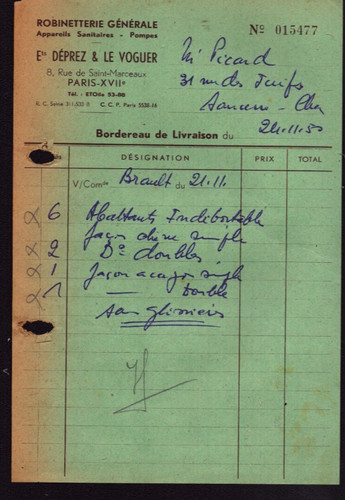 ROBINETTERIE GÉNÉRALE
Appareils Sanitaires - Pompes
Ets DÉPREZ & LE VOGUER
8, Rue de Saint-Marceaux
PARIS-XVIIe
Tél. - ETOile 53-80
R. C. Seine
C. C. P. Paris
No 015477
M Picard
31 rue des Juifs
Sancerre - Cher
Bordereau de Livraison du 24.11.50
DÉSIGNATION PRIX TOTAL
V/Comde Brault du 21.11.
6 Abattants Indéboitable
façon chêne simple
2 Do doubles
1 façon acajou simple
1 — Double
sans glissières